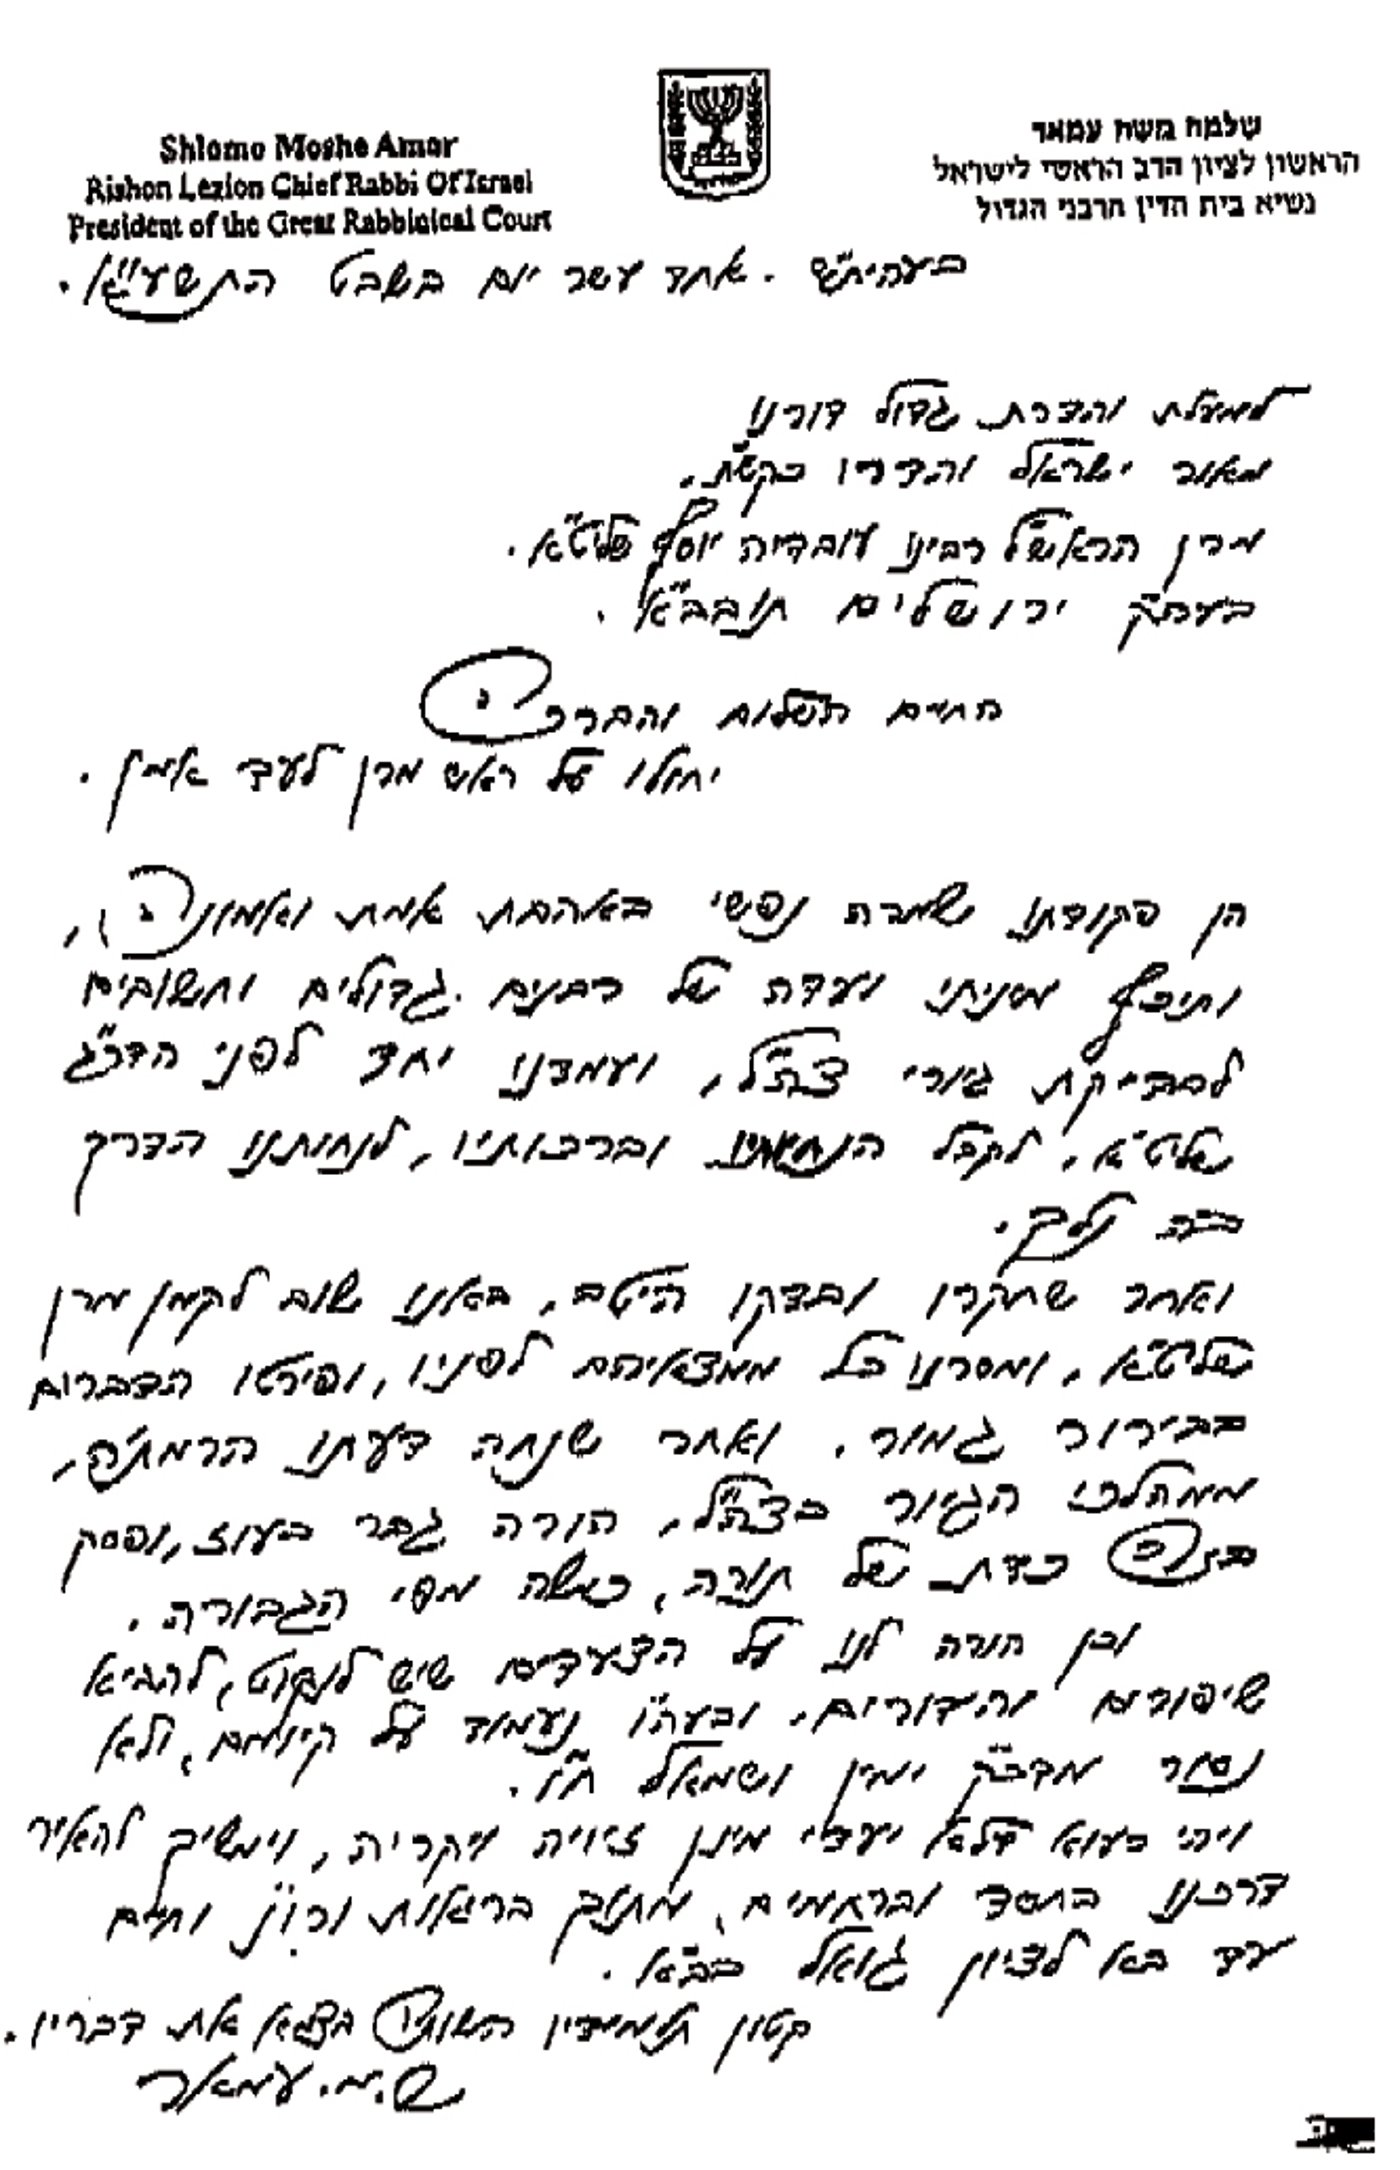 Shlomo Moshe Amar
Rishon Lezion Chief Rabbi Of Israel
President of the Great Rabbinical Court
שלמה משה עמאר
הראשון לציון הרב הראשי לישראל
נשיא בית הדין הרבני הגדול
בעהית"ש . אחד עשר יום בשבט התשע"א .
למעלת והדרת גדול דורנו
מאור ישראל והדרו בקש"ת,
מרן הראש"ל רבינו עובדיה יוסף שליט"א .
בעה"ק ירושלים תובב"א .
החיים השלום והברכה
יחולו על ראש מרן לעד אמן .
הן פקודתו שמרה נפשי באהבת אמת ואמונה,
ותיכף מניתי ועדה של רבנים גדולים וחשובים
לבדיקת גיורי צה"ל, ועמדנו יחד לפני הדר"ג
שליט"א, לקבל הנחיותיו וברכותיו, לנחותנו הדרך
בה נלך .
ואחר שחקרו ובדקו היטב, באנו שוב לקמן מרן
שליט"א, ומסרנו כל ממצאיהם לפניו, ופירטו הדברים
בבירור גמור. ואחר שנחה דעתו הרמת"ה,
ממהלכי הגיור בצה"ל, הורה גבר בעוז, ופסק
בזה כדת של תורה, כמשה מפי הגבורה .
וכן הורה לנו על הצעדים שיש לנקוט, להביא
שיפורים והידורים. ובעה"ו נעמוד על קיומם, ולא
נסור מדב"ק ימין ושמאל ח"ו .
ויהי רעוא דלא יעדי מינן זיויה ויקריה, וימשיך להאיר
דרכנו בחסד וברחמים, מתוך בריאות ורו"נ וחיים
עד בא לציון גואל בב"א .
קטון תלמידיו השותה בצמא את דבריו .
ש.מ. עמאר